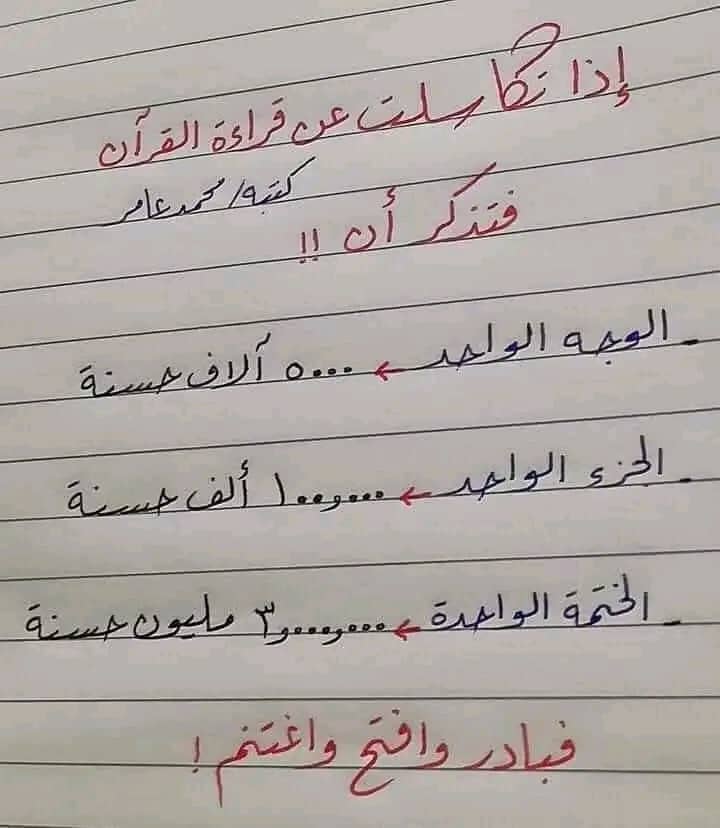 إذا تكاسلت عن قراءة القرآن
كتبه/محمد عامر
فتذكر أن !!
- الوجه الواحد ← ٥٠٠٠ آلاف حسنة
- الجزء الواحد ← ١٠٠,٠٠٠ ألف حسنة
- الختمة الواحدة ← ٣,٠٠٠,٠٠٠ مليون حسنة
فبادر وافتح واغتنم !